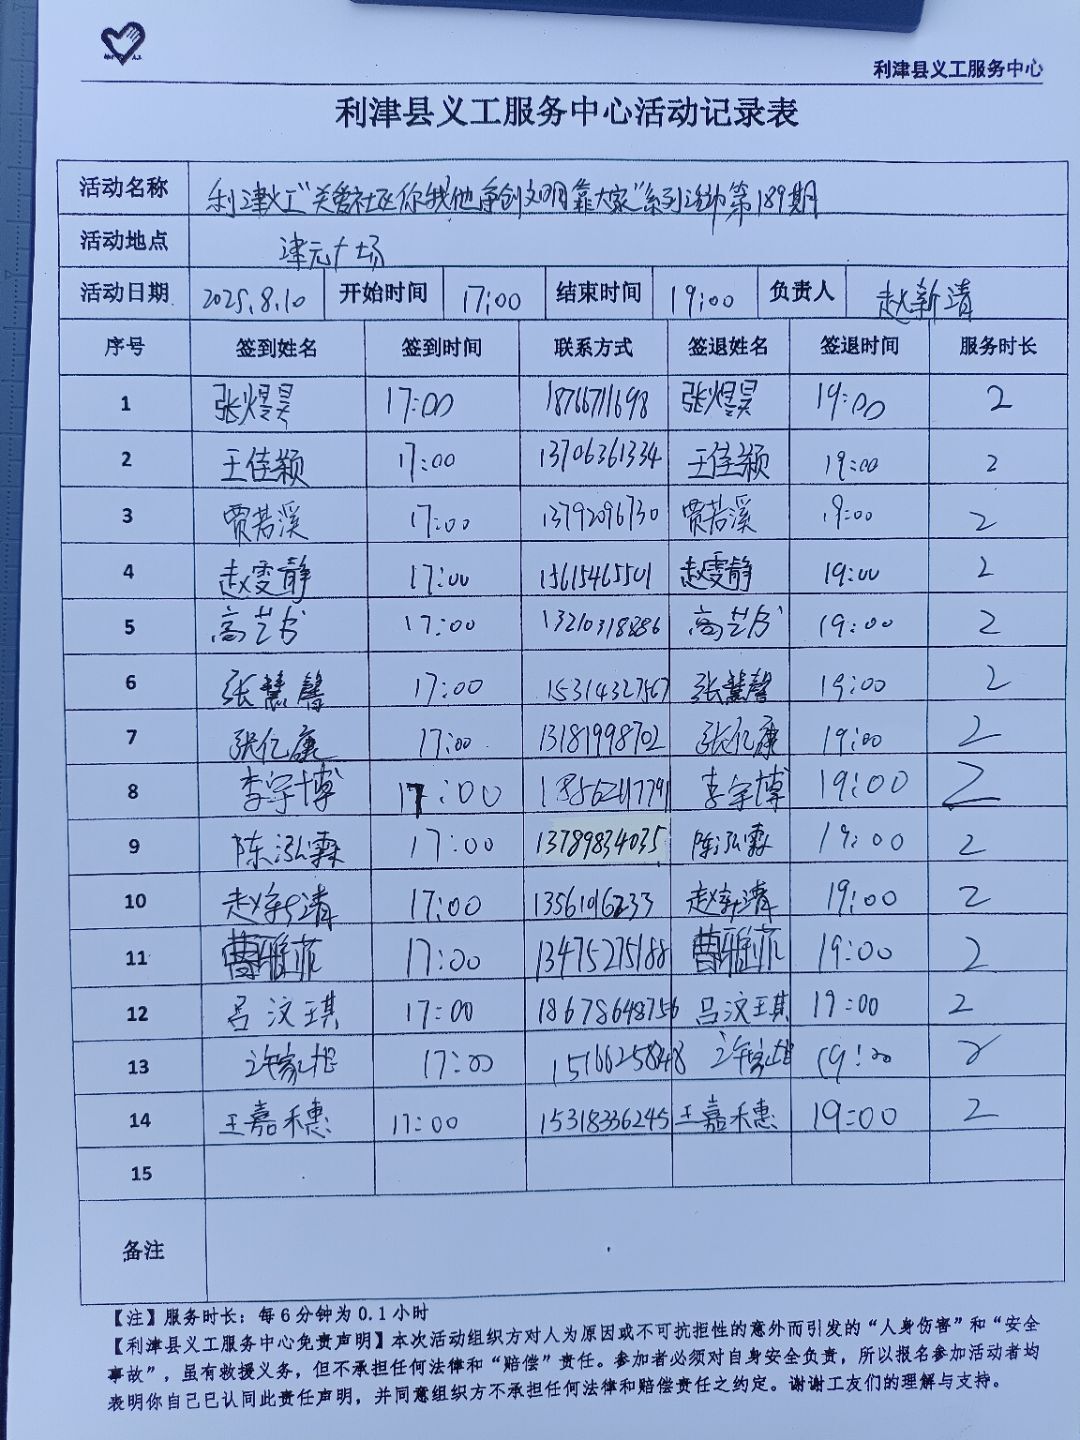 利津县义工服务中心
利津县义工服务中心活动记录表
活动名称 利津义工"关爱社区你我他争创文明靠大家"系列活动第189期
活动地点 津元广场
活动日期 2025.8.10 开始时间 17:00 结束时间 19:00 负责人 赵新清
序号 签到姓名 签到时间 联系方式 签退姓名 签退时间 服务时长
1 张煜昊 17:00 18766711698 张煜昊 19:00 2
2 王佳颖 17:00 13706361334 王佳颖 19:00 2
3 贾若溪 17:00 13792096730 贾若溪 19:00 2
4 赵雯静 17:00 15615465501 赵雯静 19:00 2
5 高艺书 17:00 13210318886 高艺书 19:00 2
6 张慧馨 17:00 15314327567 张慧馨 19:00 2
7 张亿康 17:00 13181998702 张亿康 19:00 2
8 李宇博 17:00 李宇博 19:00 2
9 陈泓霖 17:00 13789834035 陈泓霖 19:00 2
10 赵新清 17:00 13561016233 赵新清 19:00 2
11 曹雅菲 17:00 13475275188 曹雅菲 19:00 2
12 吕汶琪 17:00 18678648756 吕汶琪 19:00 2
13 许家旭 17:00 许家旭 19:00 2
14 王嘉穗 17:00 15318336245 王嘉穗 19:00 2
15
备注
【注】服务时长：每6分钟为0.1小时
【利津县义工服务中心免责声明】本次活动组织方对人为原因或不可抗拒性的意外而引发的“人身伤害”和“安全
事故”，虽有救援义务，但不承担任何法律和“赔偿”责任。参加者必须对自身安全负责，所以报名参加活动者均
表明你自己已认同此责任声明，并同意组织方不承担任何法律和赔偿责任之约定。谢谢工友们的理解与支持。